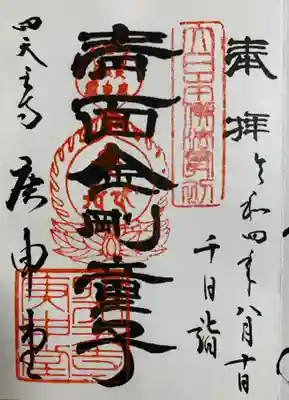 奉拝
令和四年八月十日
千日詣
青面金剛童子
四天王寺
庚申堂
庚申堂